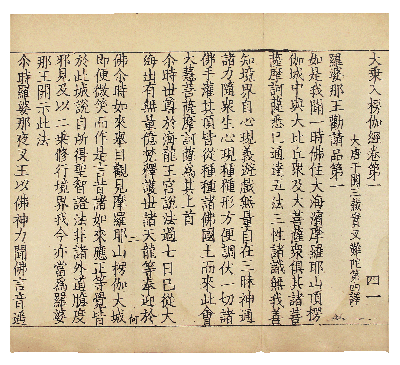 大乘入楞伽經卷第一
大唐于闐三藏實叉難陀奉勅譯 四 一
羅婆那王勸請品第一
如是我聞一時佛住大海濱摩羅耶山頂楞
伽城中與大比丘衆及大菩薩衆俱其諸菩
薩摩訶薩悉已通達五法三性諸識無我善
知境界自心現義遊戲無量自在三昧神通
諸力隨衆生心現種種形方便調伏一切諸
佛手灌其頂皆從種種諸佛國土而來此會
大慧菩薩摩訶薩爲其上首
尒時世尊於海龍王宮說法過七日已從大
海出有無量億梵釋護世諸天龍等奉迎於
佛尒時如來舉目觀見摩羅耶山楞伽大城
即便微笑而作是言昔諸如來應正等覺皆
於此城說自所得聖智證法非諸外道臆度
邪見及以二乘修行境界我今亦當爲羅婆
那王開示此法
尒時羅婆那夜叉王以佛神力聞佛言音遥
何